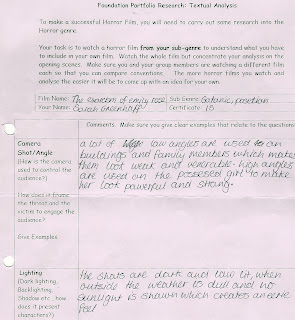 Foundation Portfolio Research: Textual Analysis
To make a successful Horror Film, you will need to carry out some research into the
Horror genre.
Your task is to watch a horror film from your sub-genre to understand what you have
to include in your own film. Watch the whole film but concentrate your analysis on the
opening scenes. Make sure you and your group members are watching a different film
each so that you can compare conventions. The more horror films you watch and
analyse the easier it will be to come up with an idea for your own.
Film Name: The exorcism of emily rose Sub Genre: Satanic, possetion
Your Name: Sarah Greenhalf Certificate: 15
Comments. Make sure you give clear examples that relate to the question
Camera
Shot/Angle
(How is the camera
used to control the
audience?)
How does it frame
the threat and the
victim to engage the
audience?
Give Examples
a lot of low angles are used on
buildings and family members which makes
them look weak and venerable. high angles
are used on the possesed girl to make
her look powerful and strong.
Lighting
(Dark lighting,
Backlighting,
Shadow etc.. how
does it present
characters?)
the shots are dark and low lit, when
outside the weather is dull and no
sunlight is shown which creates an eerie
feel